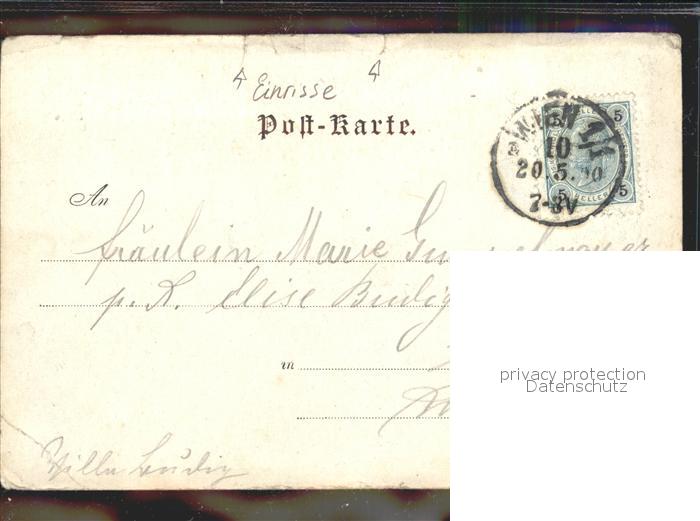 Einrisse
Post-Karte.
WIEN 1/1
10
20.5.00
7-8V
5 5
HELLER
5 5
An
Fräulein Marie
p. A. Elise Budig
in
privacy protection
Datenschutz
Villa Budig